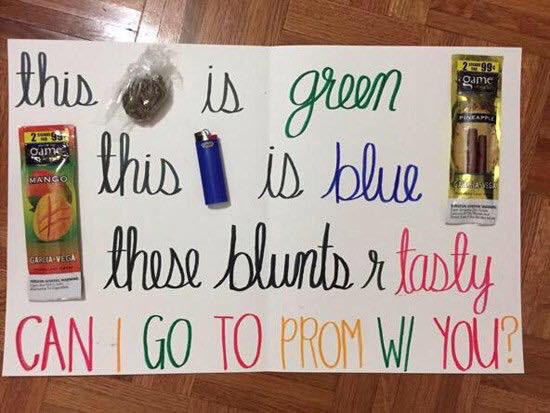 this is green
this is blue
these blunts r tasty
CAN I GO TO PROM W/ YOU?
2 99¢
game
MANGO
GARCIA • VEGA
2 99¢
game
PINEAPPLE
GARCIA • VEGA
BIC